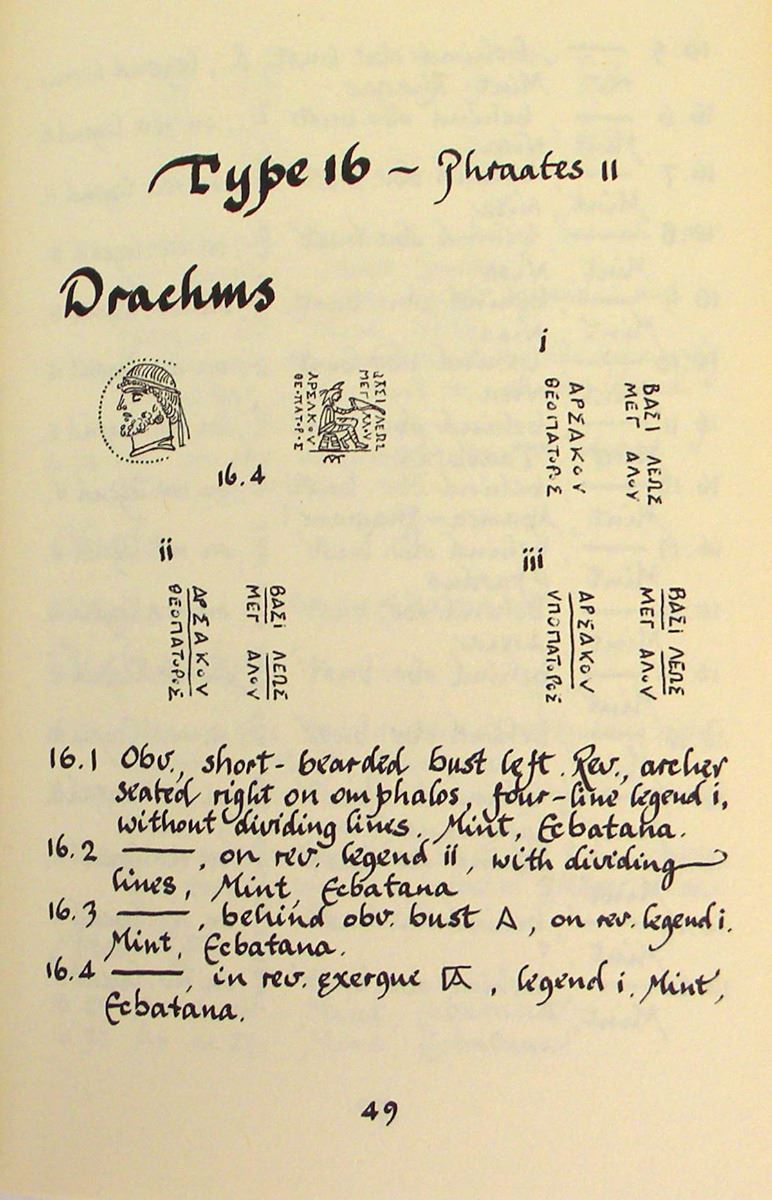 Type 16 ~ Phraates II
Drachms
ΜΕΓ ΑΛΟΥ
ΑΡΣΑΚΟΥ
16.4
i
ΒΑΣΙ ΛΕΩΣ
ΜΕΓ ΑΛΟΥ
ΑΡΣΑΚΟΥ
ΘΕΟΠΑΤΟΡΟΣ
ii
ΒΑΣΙ ΛΕΩΣ
ΜΕΓ ΑΛΟΥ
ΑΡΣΑΚΟΥ
ΘΕΟΠΑΤΟΡΟΣ
iii
ΒΑΣΙ ΛΕΩΣ
ΜΕΓ ΑΛΟΥ
ΑΡΣΑΚΟΥ
ΥΠΟΠΑΤΟΡΟΣ
16.1 Obv., short-bearded bust left. Rev., archer
seated right on omphalos, four-line legend i,
without dividing lines. Mint, Ecbatana.
16.2 ——, on rev. legend ii, with dividing
lines, Mint, Ecbatana
16.3 ——, behind obv. bust Α, on rev. legend i.
Mint, Ecbatana.
16.4 ——, in rev. exergue, legend i. Mint,
Ecbatana.
49